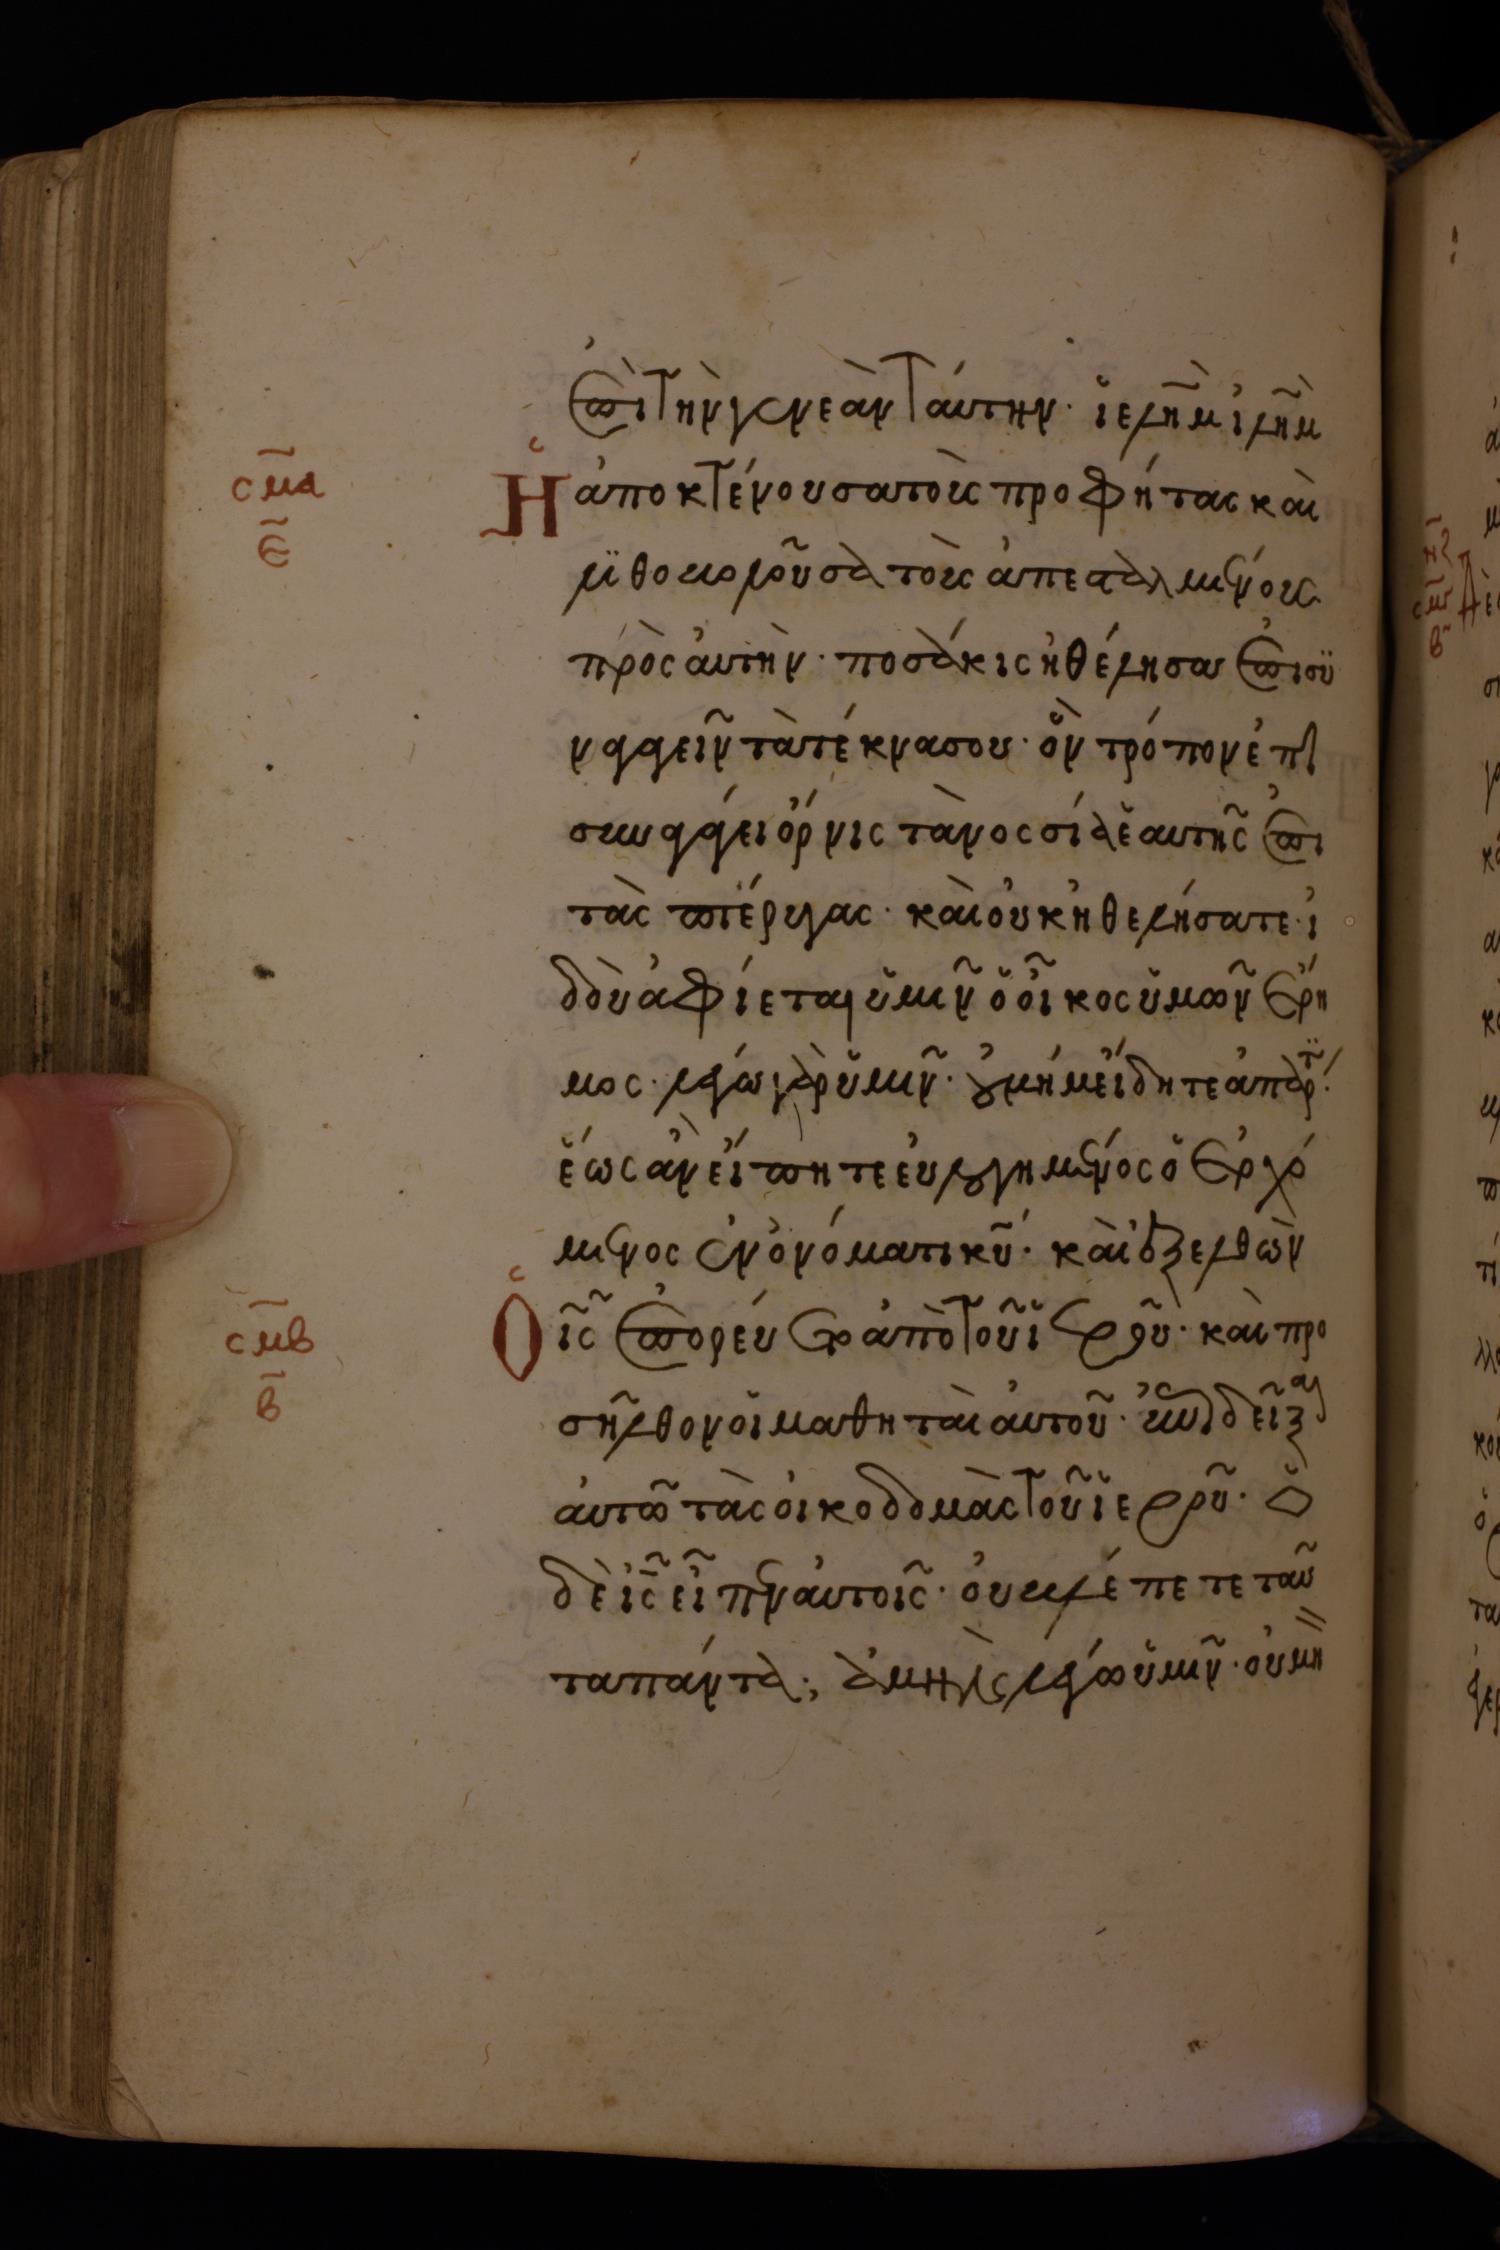 ἐπὶ τὴν γενεὰν ταύτην· ἱ̈ελη̃μ ἱλη̃μ
σμα Ἡ ἀποκτένουσα τοὺς προφήτας καὶ
ε λϊθοβολοῦσα τοὺς ἀπεσταλμένους
πρὸς ἀυτὴν· ποσάκις ἠθέλησα ἐπισϋ
ναγαγεῖν τὰ τέκνα σου· ὃν τρόπον ἐπι
συναγάγει ὄρνις τὰ νοσσία ἑαυτῆς ἐπὶ
τὰς πτέρυγας· καὶ οὐκ ἠθελήσατε· ἰ
δοὺ ἀφίεται ὑμῖν ὁ οἶκος ὑμῶν ἔρη
μος· λέγω γὰρ ὑμῖν· οὐ μή με ἴδητε ἀπάρτι·
ἕως ἂν εἴπητε ἐυλογημένος ὁ ἐρχό
μενος ἐν ὀνόματι κυ̃· καὶ ἐξελθὼν
σμβ Ὁ ις̃ ἐπορεύετο ἀπὸ τοῦ ἱεροῦ· καὶ προ
β σῆλθον ὁι μαθηταὶ ἀυτοῦ· ἐπιδεῖξαι
ἀυτῶ τὰς ὀικοδομὰς τοῦ ἱεροῦ· ὁ
δὲ ις̃ εἶπεν ἀυτοῖς· ὀυ βλέπετε ταῦ
τα πάντα; ἀμὴν λέγω ὑμῖν· ὀυ μὴ